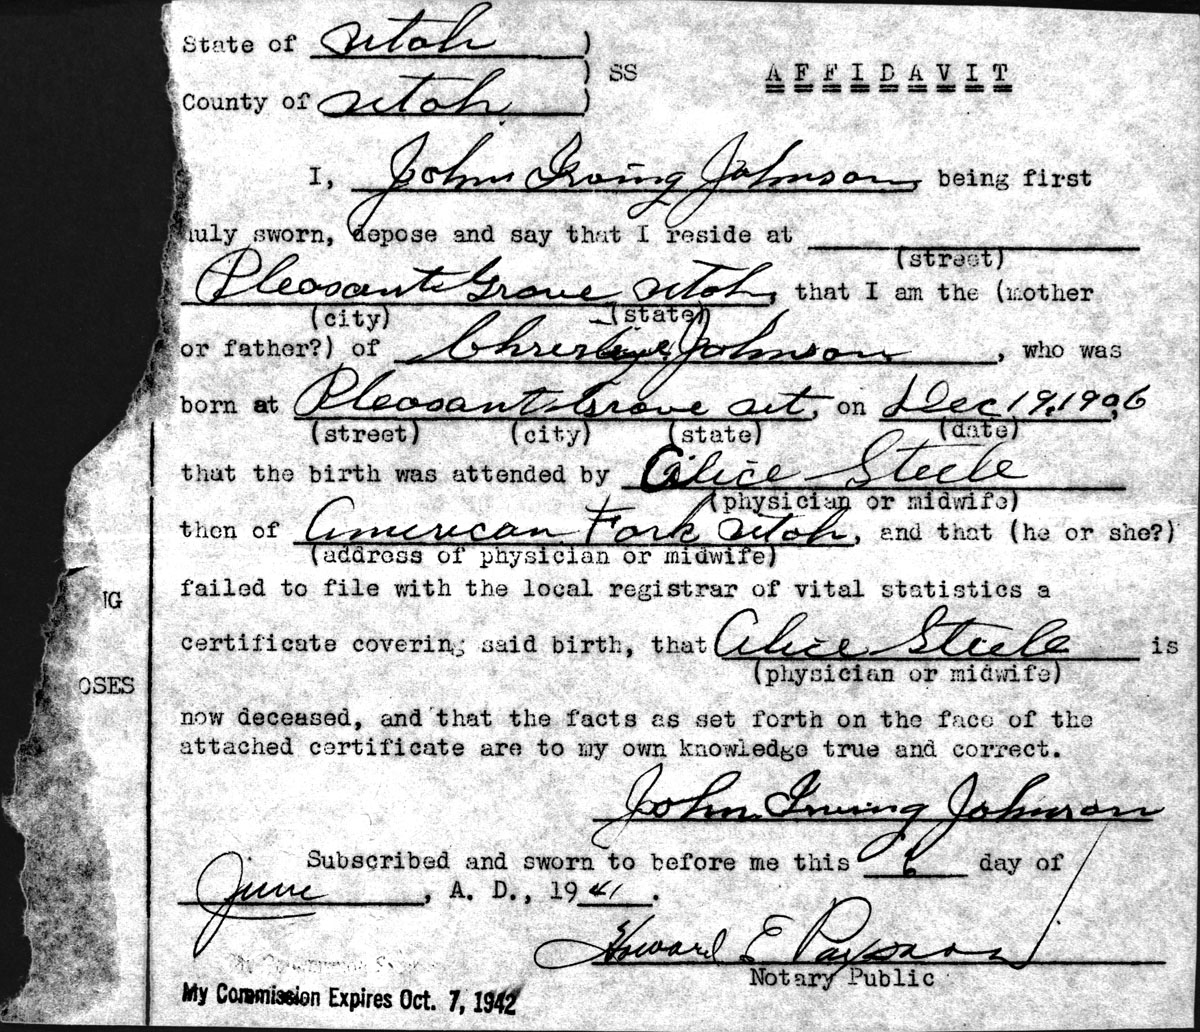 State of Utah )
) SS AFFIDAVIT
County of Utah )
I, John Irving Johnson, being first
uly sworn, depose and say that I reside at
(street)
Pleasant Grove Utah, that I am the (mother
(city) (state)
or father?) of Johnson, who was
born at Pleasant Grove Ut, on Dec 19, 1906,
(street) (city) (state) (date)
that the birth was attended by Alice Steele
(physician or midwife)
then of American Fork Utah, and that (he or she?)
(address of physician or midwife)
failed to file with the local registrar of vital statistics a
NG
certificate covering said birth, that Alice Steele is
(physician or midwife)
OSES
now deceased, and that the facts as set forth on the face of the
attached certificate are to my own knowledge true and correct.
John Irving Johnson
Subscribed and sworn to before me this 6 day of
June, A. D., 1941.
Howard E
Notary Public
My Commission Expires Oct. 7, 1942